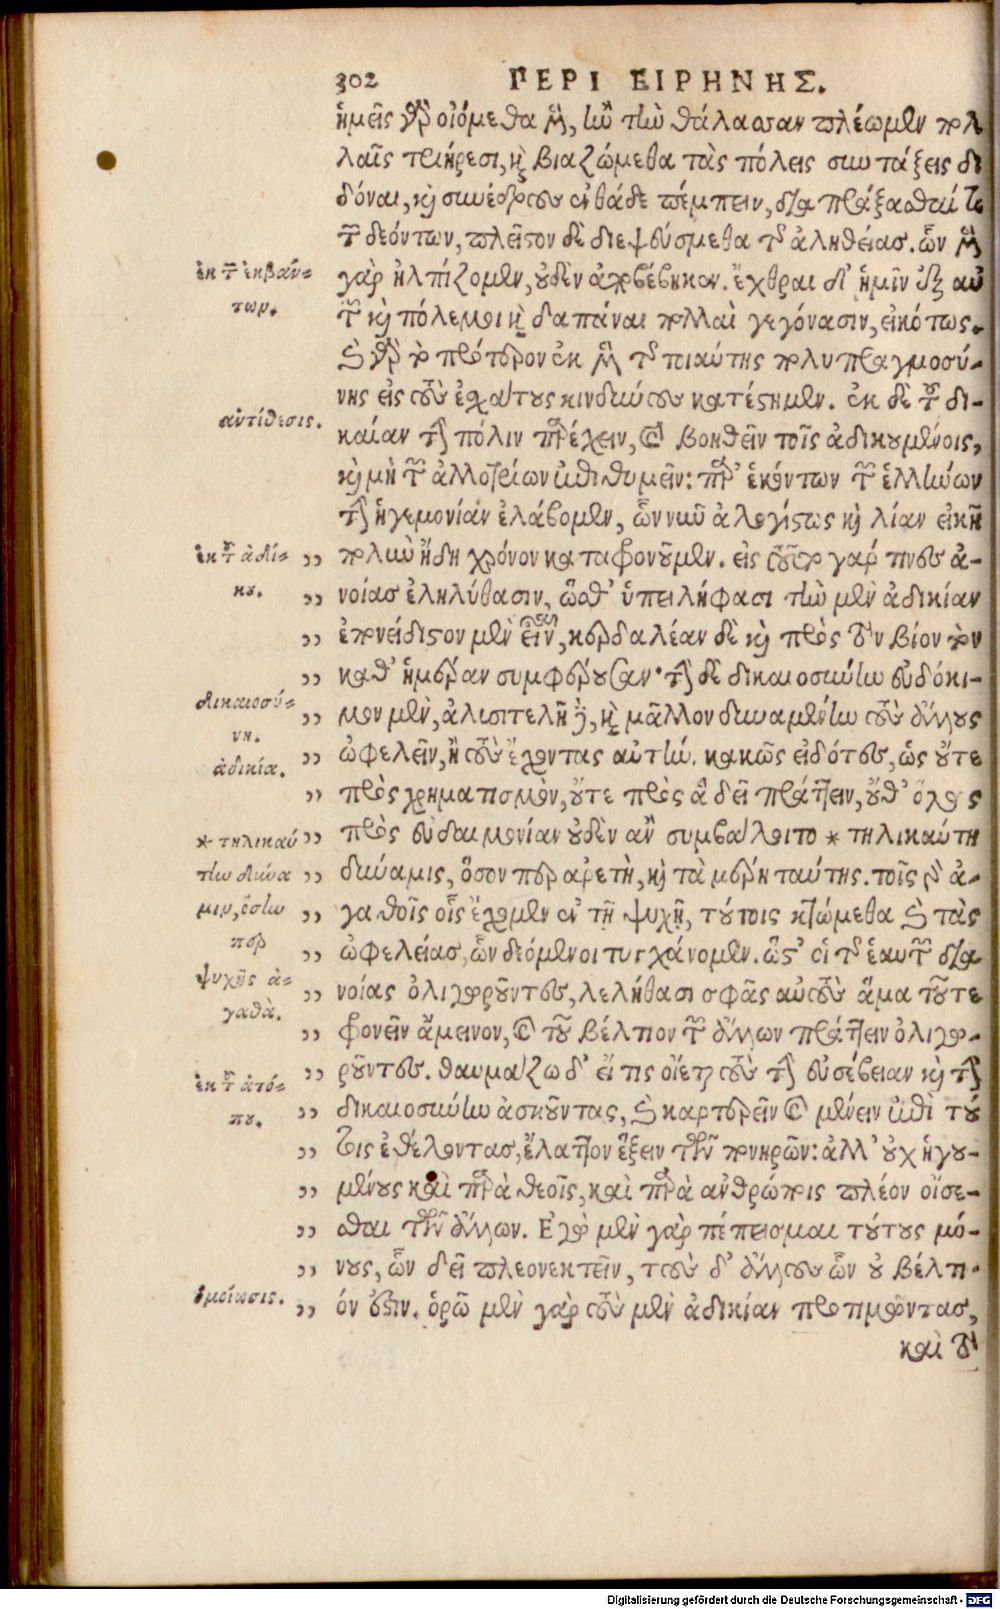 302 ΠΕΡΙ ΕΙΡΗΝΗΣ.
ἡμεῖς γὰρ οἰόμεθα μὲν, ἢν τὴν θάλασσαν πλέωμεν πολ
λαῖς τριήρεσι, καὶ βιαζώμεθα τὰς πόλεις συντάξεις δι
δόναι, καὶ συνέδρους ἐνθάδε πέμπειν, διαπράξασθαί τι
τῶν δεόντων, πλεῖστον δὲ διεψεύσμεθα τῆς ἀληθείας. ὧν μὲν
γὰρ ἠλπίζομεν, οὐδὲν ἀποβέβηκεν. ἔχθραι δ' ἡμῖν ἐξ αὐ
τῶν καὶ πόλεμοι καὶ δαπάναι πολλαὶ γεγόνασιν, εἰκότως.
καὶ γὰρ τὸ πρότερον ἐκ μὲν τῆς τοιαύτης πολυπραγμοσύ-
νης εἰς τοὺς ἐσχάτους κινδύνους κατέστημεν. ἐκ δὲ τοῦ δι-
καίαν τὴν πόλιν παρέχειν, καὶ βοηθεῖν τοῖς ἀδικουμένοις,
καὶ μὴ τῶν ἀλλοτρίων ἐπιθυμεῖν: παρ' ἑκόντων τῶν ἑλλήνων
τὴν ἡγεμονίαν ἐλάβομεν, ὧν νῦν ἀλογίστως καὶ λίαν εἰκῆ
πολὺν ἤδη χρόνον καταφρονοῦμεν. εἰς τοῦτο γάρ τινες ἀ-
νοίας ἐληλύθασιν, ὥσθ' ὑπειλήφασι τὴν μὲν ἀδικίαν
ἐπονείδιστον μὲν εἶναι, κερδαλέαν δὲ καὶ πρὸς τὸν βίον τὸν
καθ' ἡμέραν συμφέρουσαν· τὴν δὲ δικαιοσύνην εὐδόκι-
μον μὲν, ἀλυσιτελῆ δὲ, καὶ μᾶλλον δυναμένην τοὺς ἄλλους
ὠφελεῖν, ἢ τοὺς ἔχοντας αὐτήν. κακῶς εἰδότες, ὡς οὔτε
πρὸς χρηματισμὸν, οὔτε πρὸς ἃ δεῖ πράττειν, οὔθ' ὅλως
πρὸς εὐδαιμονίαν οὐδὲν ἂν συμβάλοιτο * τηλικαύτη
δύναμις, ὅσον περ ἀρετὴ, καὶ τὰ μέρη ταύτης. τοῖς γὰρ ἀ-
γαθοῖς οἷς ἔχομεν ἐν τῇ ψυχῇ, τούτοις κτώμεθα καὶ τὰς
ὠφελείας, ὧν δεόμενοι τυγχάνομεν. ὥσθ' οἱ τῆς ἑαυτῶν δια
νοίας ὀλιγωροῦντες, λελήθασι σφᾶς αὐτοὺς ἅμα τοῦ τε
φρονεῖν ἄμεινον, καὶ τοῦ βέλτιον τῶν ἄλλων πράττειν ὀλιγω-
ροῦντες. θαυμάζω δ' εἴ τις οἴεται τοὺς τὴν εὐσέβειαν καὶ τὴν
δικαιοσύνην ἀσκοῦντας, καὶ καρτερεῖν καὶ μένειν ἐπὶ τού
τοις ἐθέλοντας, ἔλαττον ἕξειν τῶν πονηρῶν: ἀλλ' οὐχ ἡγου-
μένους καὶ παρὰ θεοῖς, καὶ παρὰ ἀνθρώποις πλέον οἴσε-
σθαι τῶν ἄλλων. Ἐγὼ μὲν γὰρ πέπεισμαι τούτους μό-
νους, ὧν δεῖ πλεονεκτεῖν, τοὺς δ' ἄλλους ὧν οὐ βέλτι-
όν ἐστιν. ὁρῶ μὲν γὰρ τοὺς μὲν ἀδικίαν προτιμῶντας,
καὶ τὸ
ἐκ τῶν ἐκβάν-
των.
ἀντίθεσις.
ἐκ τοῦ ἀδί-
κου.
δικαιοσύ-
νη.
ἀδικία.
* τηλικαύ
την δύνα
μιν, ὅσην
περ
ψυχῆς ἀ-
γαθὰ.
ἐκ τοῦ ἀτό-
που.
ὁμοίωσις.
Digitalisierung gefördert durch die Deutsche Forschungsgemeinschaft - DFG